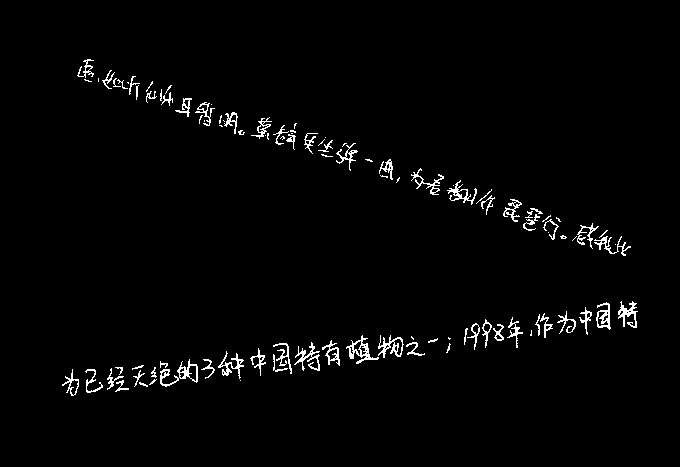 语，如听仙乐耳暂明。莫辞更坐弹一曲，为君翻作琵琶行。感我此
为已经灭绝的3种中国特有植物之一；1998年，作为中国特